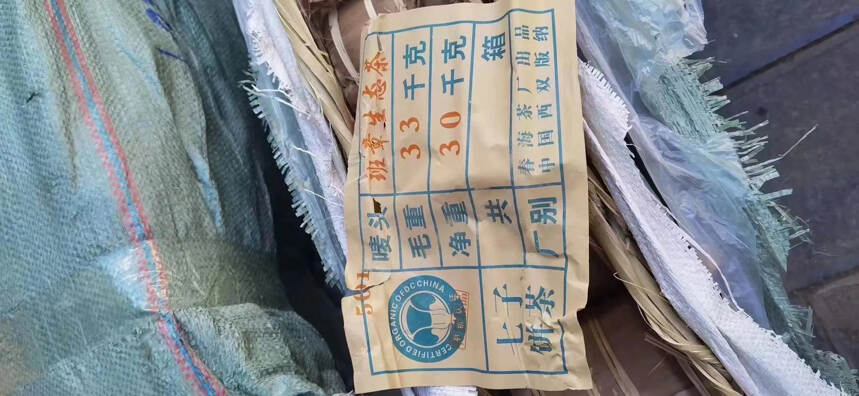 501
唛头 班章生态茶
毛重 33 千克
净重 30 千克
共 箱
厂别 春海茶厂出品
中国西双版纳
CERTIFIED ORGANIC OFDC CHINA
七子
饼茶